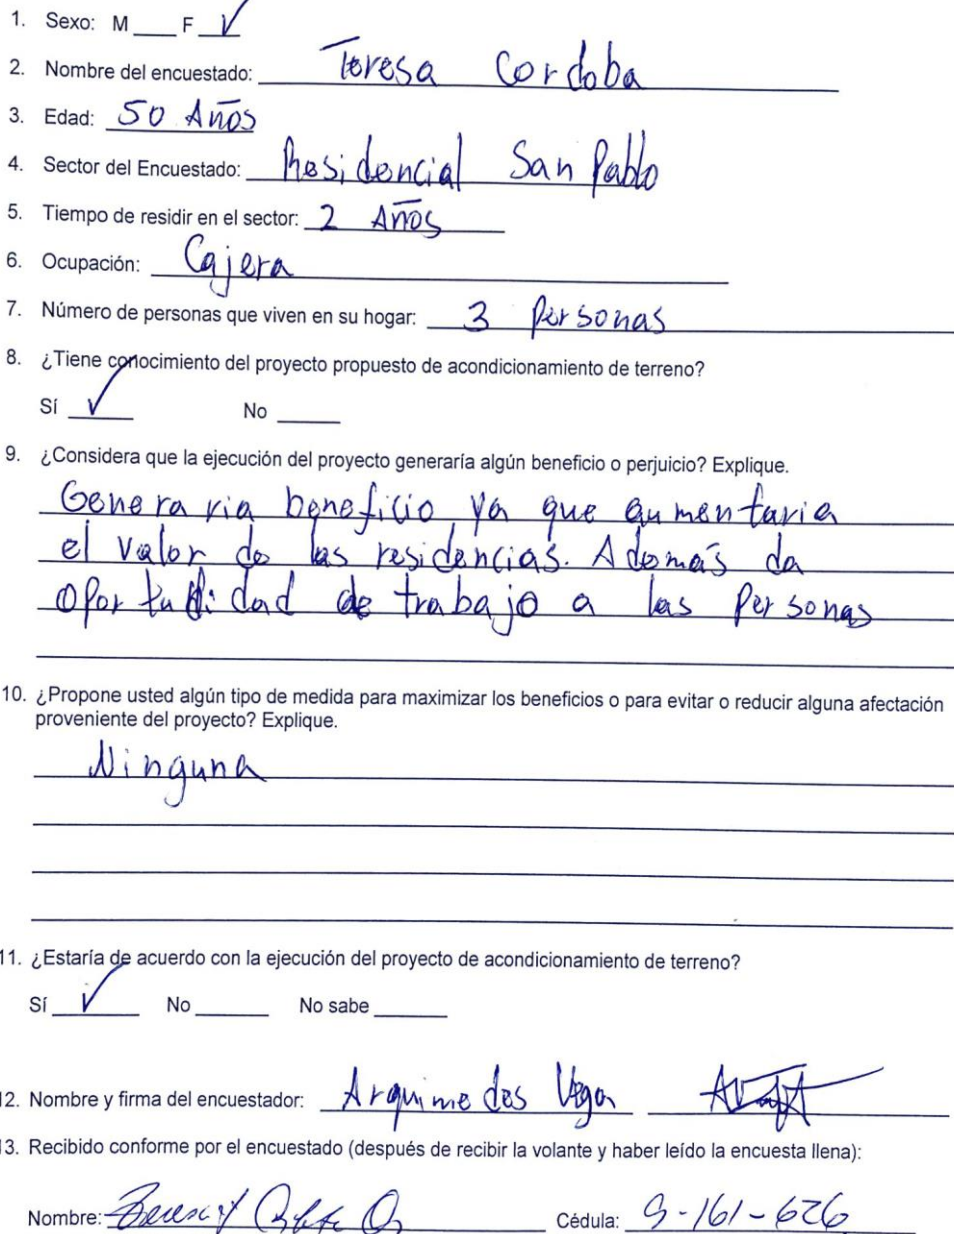 1. Sexo: M ____ F ✓
2. Nombre del encuestado: Teresa Cordoba
3. Edad: 50 Años
4. Sector del Encuestado: Residencial San Pablo
5. Tiempo de residir en el sector: 2 Años
6. Ocupación: Cajera
7. Número de personas que viven en su hogar: 3 Personas
8. ¿Tiene conocimiento del proyecto propuesto de acondicionamiento de terreno?
Sí ✓ No ____
9. ¿Considera que la ejecución del proyecto generaría algún beneficio o perjuicio? Explique.
Generaria beneficio ya que aumentaria
el valor de las residencias. Además da
oportunidad de trabajo a las Personas
10. ¿Propone usted algún tipo de medida para maximizar los beneficios o para evitar o reducir alguna afectación
proveniente del proyecto? Explique.
Ninguna
11. ¿Estaría de acuerdo con la ejecución del proyecto de acondicionamiento de terreno?
Sí ✓ No ____ No sabe ____
12. Nombre y firma del encuestador: Arquimedes Vega
13. Recibido conforme por el encuestado (después de recibir la volante y haber leído la encuesta llena):
Nombre: Cédula: 9-161-626